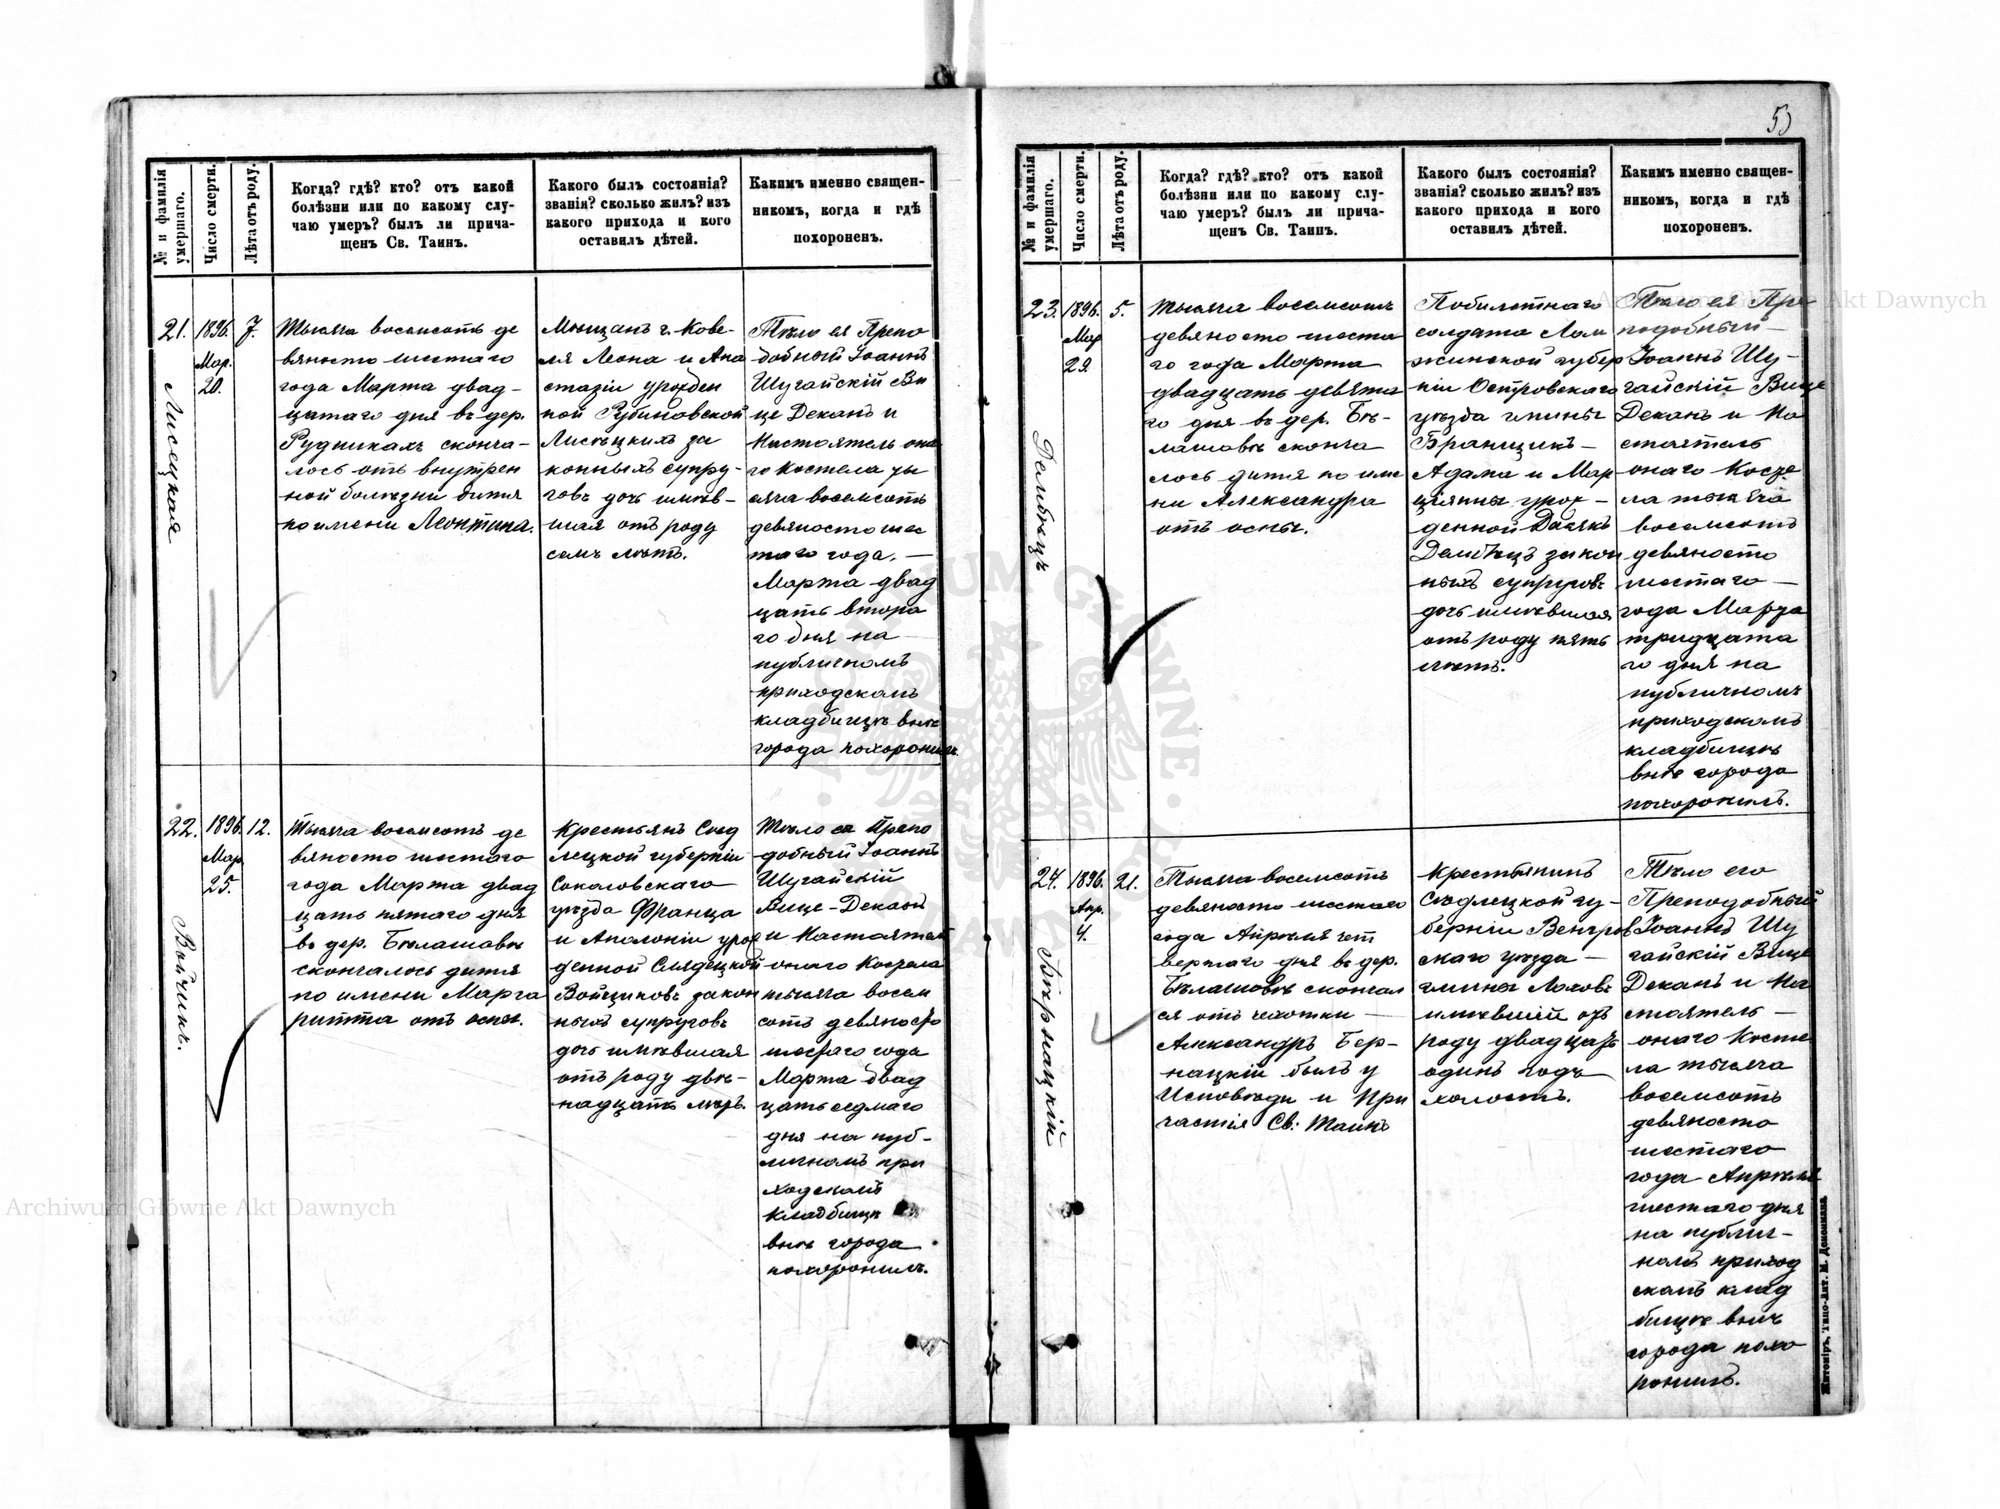 5)
№ и фамилія умершаго.
Число смерти.
Лѣта отъ роду.
Когда? гдѣ? кто? отъ какой
болѣзни или по какому слу-
чаю умеръ? былъ ли прича-
щенъ Св. Таинъ.
Какого былъ состоянія?
званія? сколько жилъ? изъ
какого прихода и кого
оставилъ дѣтей.
Какимъ именно священ-
никомъ, когда и гдѣ
похороненъ.
21.
Лисецкая
1896.
Мар.
20.
7.
Тысяча восемсотъ де
вяносто шестаго
года Марта двад-
цатаго дня въ дер.
Рудникахъ сконча-
лось отъ внутрен
ной болѣзни дитя
по имени Леонтина.
Мѣщанъ г. Кове-
ля Леона и Ана
стазіи урожден
ной Рубиновской
Лисѣцкихъ за
конныхъ супру-
говъ дочь имѣв-
шая отъ роду
семь лѣтъ.
Тѣло ея Препо
добный Іоаннъ
Шугайскій Ви
це Деканъ и
Настоятель она
го Костела ты
сяча восемсотъ
девяносто шес
таго года. —
Марта двад
цать втора
го дня на
публичномъ
приходскомъ
кладбищѣ внѣ
города похоронилъ.
22.
Войчикъ.
1896.
Мар.
25.
12.
Тысяча восемсотъ де
вяносто шестаго
года Марта двад
цать пятаго дня
въ дер. Бѣлашовѣ
скончалось дитя
по имени Марга
ритта отъ оспы.
Крестьянъ Сѣд
лецкой губерніи
Соколовскаго
уѣзда Франца
и Аполоніи урож
денной Слядецкой
Войциковъ закон
ныхъ супруговъ
дочь имѣвшая
отъ роду двѣ-
надцать лѣтъ.
Тѣло ея Препо
добный Іоаннъ
Шугайскій
Вице-Деканъ
и Настоятель
онаго Костела
тысяча восем
сотъ девяносто
шестаго года
Марта двад
цать седмаго
дня на пуб-
личномъ при
ходскомъ
кладбищѣ
внѣ города
похоронилъ.
№ и фамилія умершаго.
Число смерти.
Лѣта отъ роду.
Когда? гдѣ? кто? отъ какой
болѣзни или по какому слу-
чаю умеръ? былъ ли прича-
щенъ Св. Таинъ.
Какого былъ состоянія?
званія? сколько жилъ? изъ
какого прихода и кого
оставилъ дѣтей.
Какимъ именно священ-
никомъ, когда и гдѣ
похороненъ.
23.
Делибѣцъ
1896.
Мар
29.
5.
Тысяча восемсотъ
девяносто шеста
го года Марта
двадцать девята
го дня въ дер. Бѣ-
лашовѣ сконча
лось дитя по име
ни Александра
отъ оспы.
Побилетнаго
солдата Лом
жинской губер
ніи Островскаго
уѣзда гмины
Бранщикъ —
Адама и Мар
ціянны урож-
денной Дзѣякъ
Делибѣцъ закон
ныхъ супруговъ
дочь имѣвшая
отъ роду пять
лѣтъ.
Тѣло ея Пре
подобный —
Іоаннъ Шу-
гайскій Вице
Деканъ и На
стоятель
онаго Косте
ла тысяча
восемсотъ
девяносто
шестаго —
года Марта
тридцата
го дня на
публичномъ
приходскомъ
кладбищѣ
внѣ города
похоронилъ.
24.
Бѣрнацкій
1896.
Апр.
4.
21.
Тысяча восемсотъ
девяносто шестаго
года Апрѣля чет
вертаго дня въ дер.
Бѣлашовѣ скончал
ся отъ чахотки —
Александръ Бер-
нацкій былъ у
Исповѣди и При
частія Св: Таинъ
Крестьянинъ
Сѣдлецкой гу-
берніи Венгров
скаго уѣзда —
гмины Лоховъ
имѣвшій отъ
роду двадцать
одинъ годъ
холостъ.
Тѣло его
Преподобный
Іоаннъ Шу
гайскій Вице
Деканъ и На
стоятель —
онаго Косте
ла тысяча
восемсотъ
девяносто
шестаго
года Апрѣля
шестаго дня
на публич-
номъ приход
скомъ клад
бищѣ внѣ
города похо
ронилъ.
Житоміръ, Типо-Лит. М. Дененмана
Archiwum Główne Akt Dawnych
Archiwum Główne Akt Dawnych
ARCHIWUM GŁÓWNE AKT DAWNYCH